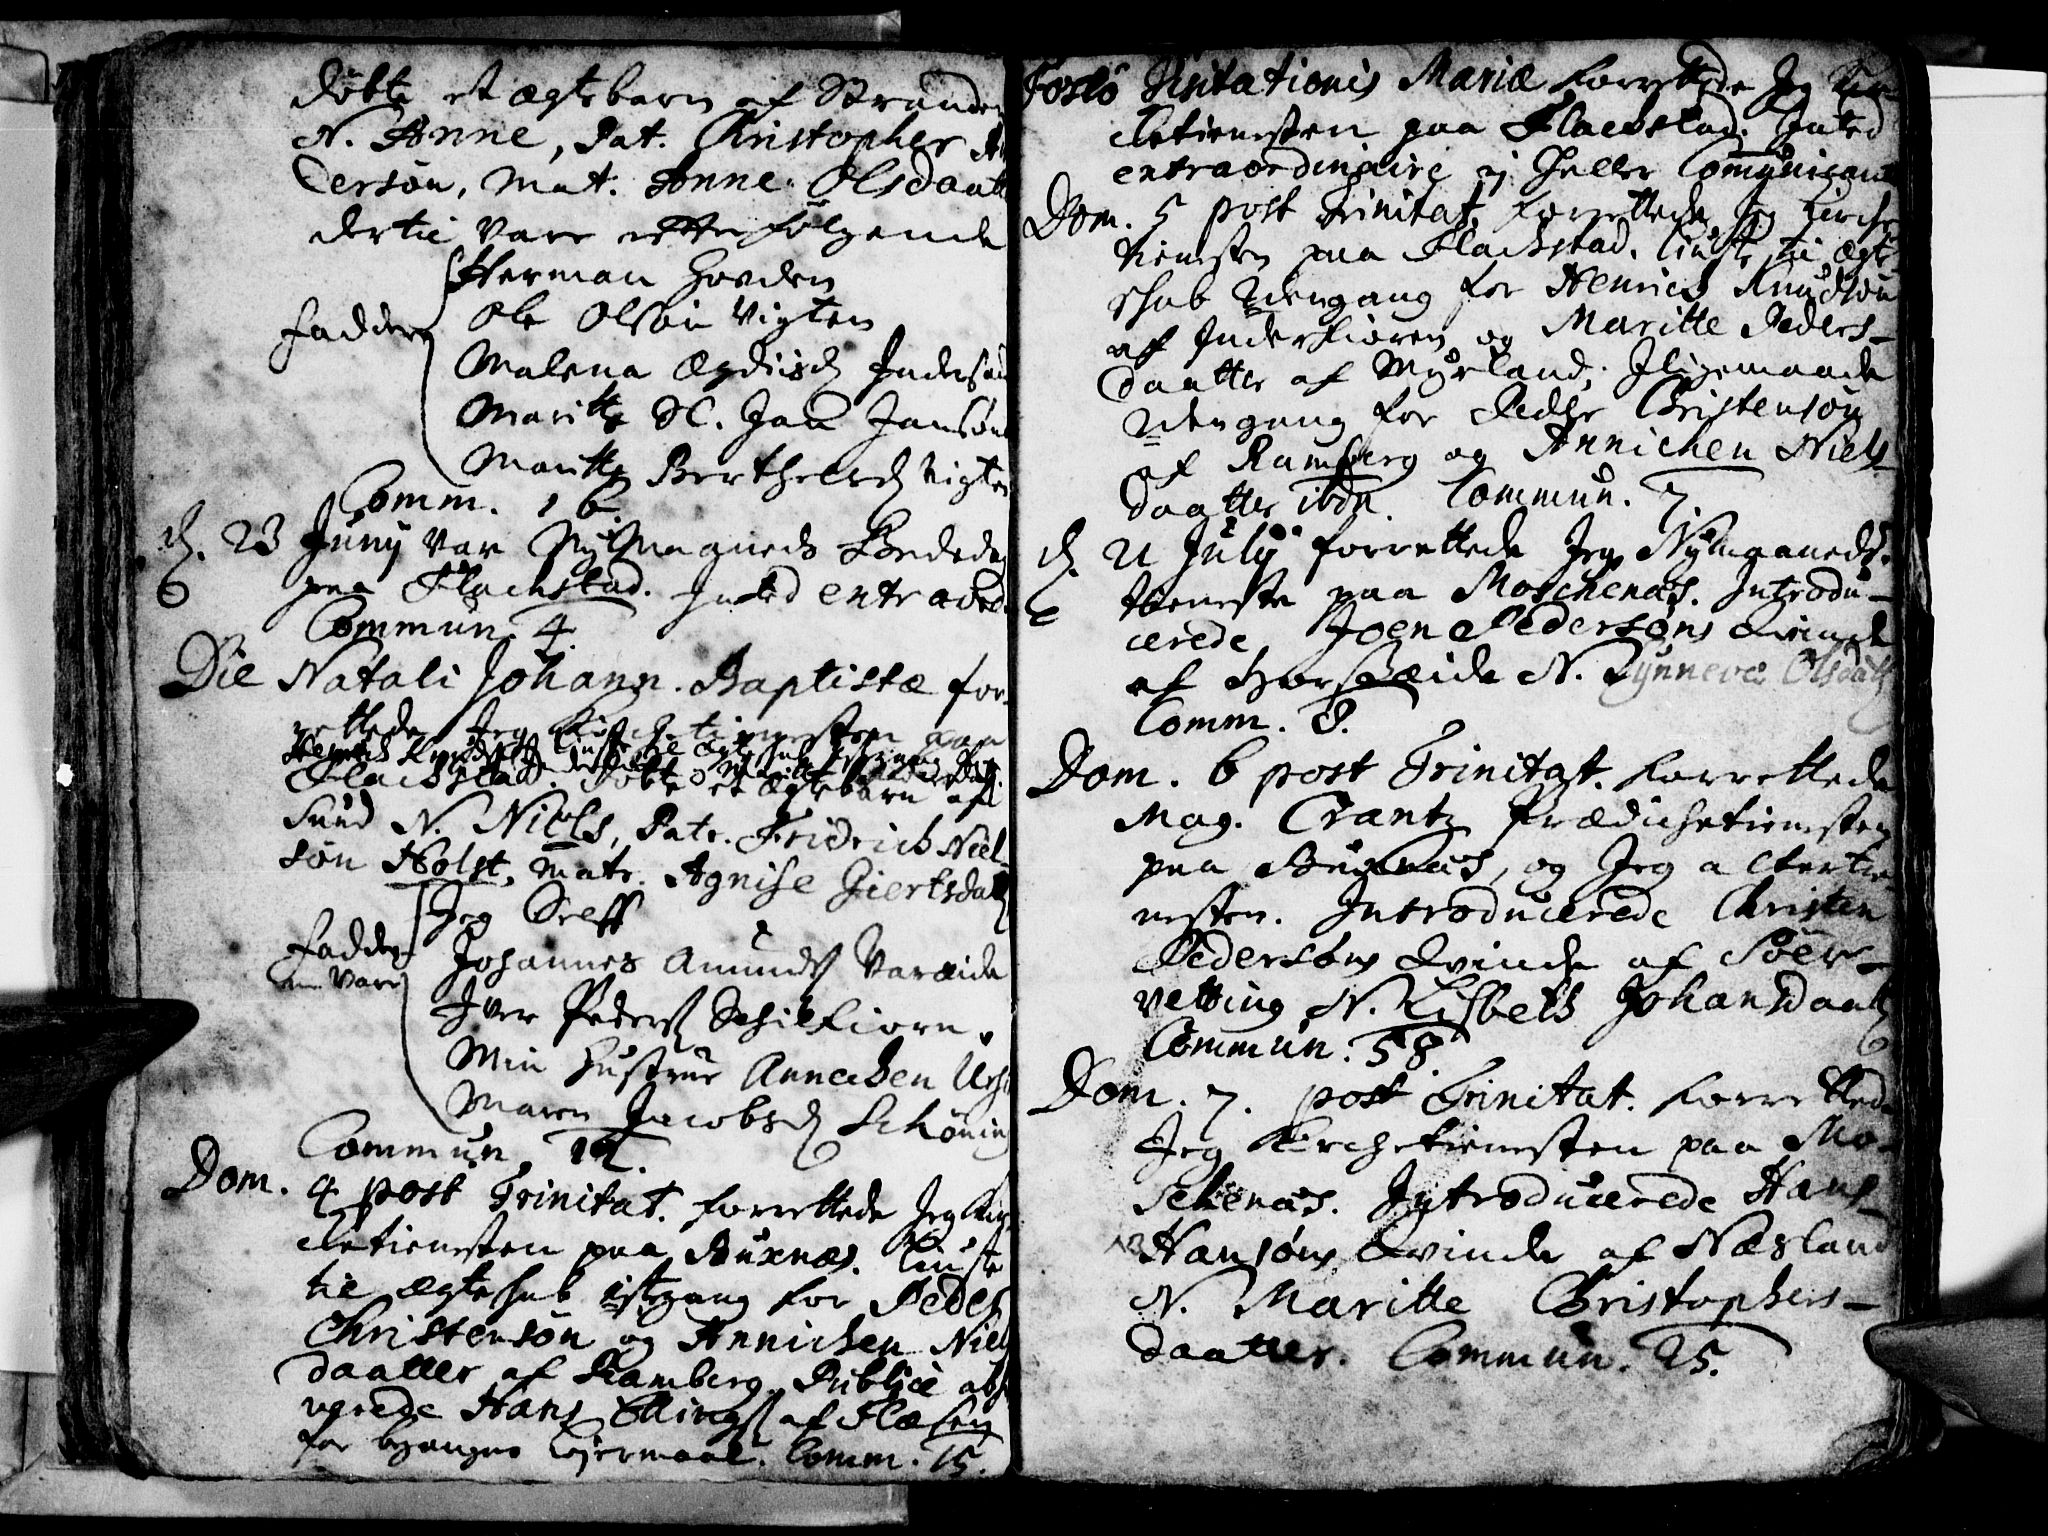 døbte et ægte barn af Stranden
N. Anne, Pat. Christopher An
dersøn, Mat. Anne Olsdaatt
dertil vare efterfølgende
Herman Hovden
Faddere
Ole Olsøn Vigten
Malena Ægdiisd
Maritte Sl. Jan Jansøns
Maritte Bertheelsd Vigten
Comm. 16.
d. 23 Junij var Ny Maaneds Bededag
paa Flachstad. Inted extraord.
Commun. 4.
Die Natali Johann. Baptistæ for-
rettede Jeg Kirchetienesten paa
Flachstad. Døbte et ægte barn af
Sund N. Niels, Patr. Fridrich Niel-
søn Holst, Matr. Agnise Giertsdatt
Jeg Self
Faddere
vare
Johannes Amunds Vareide
Iver Peders Schielfiorn.
Min Hustrue Annechen
Maren Jacobsd Schøning
Commun. 12.
Dom. 4 post Trinitat. forrettede Jeg Kir-
chetienesten paa Buxnæs. liuste
til ægteschab 1ste gang for Peder
Christensøn og Annichen Niels
daatter af Ramberg. Publice abs
verede Hans Ellings af Flæsen
for begangne Leiermaal. Comm. 15.
Festo Visitationis Mariæ forrettede Jeg Kir-
chetienesten paa Flachstad. Inted
extraordinaire ej heller Communicant
Dom. 5 post Trinitat. forrettede Jeg Kirche
tienesten paa Flachstad. liuste til ægte
schab anden gang for Henrich Knudsøn
af Inderfioren og Maritte Peders-
daatter af Myrland; Iligemaade
anden gang for Peder Christensøn
af Ramberg og Annichen Niels
daatter ibdn. Commun. 7.
d. 21 July forrettede Jeg Nymaaneds
tieneste paa Moschenæs. Introdu-
cerede Joen Pedersøns Qvinde
af Horseide N. Synneve Olsdatt
Comm. 8.
Dom. 6 post Trinitat. forrettede
Mag. Crantz Prædichetienesten
paa Buxnæs, og Jeg altertie-
nesten. Introducerede Christen
Pedersøns Qvinde af Søer-
vetting N. Lisbeth Johansdaatt
Commun. 58
Dom. 7. post Trinitat. forrettede
Jeg Kirchetienesten paa Mo-
schenæs. Introducerede Hans
Hansøns Qvinde af Næsland
N. Maritte Christophers-
daatter. Commun. 25.